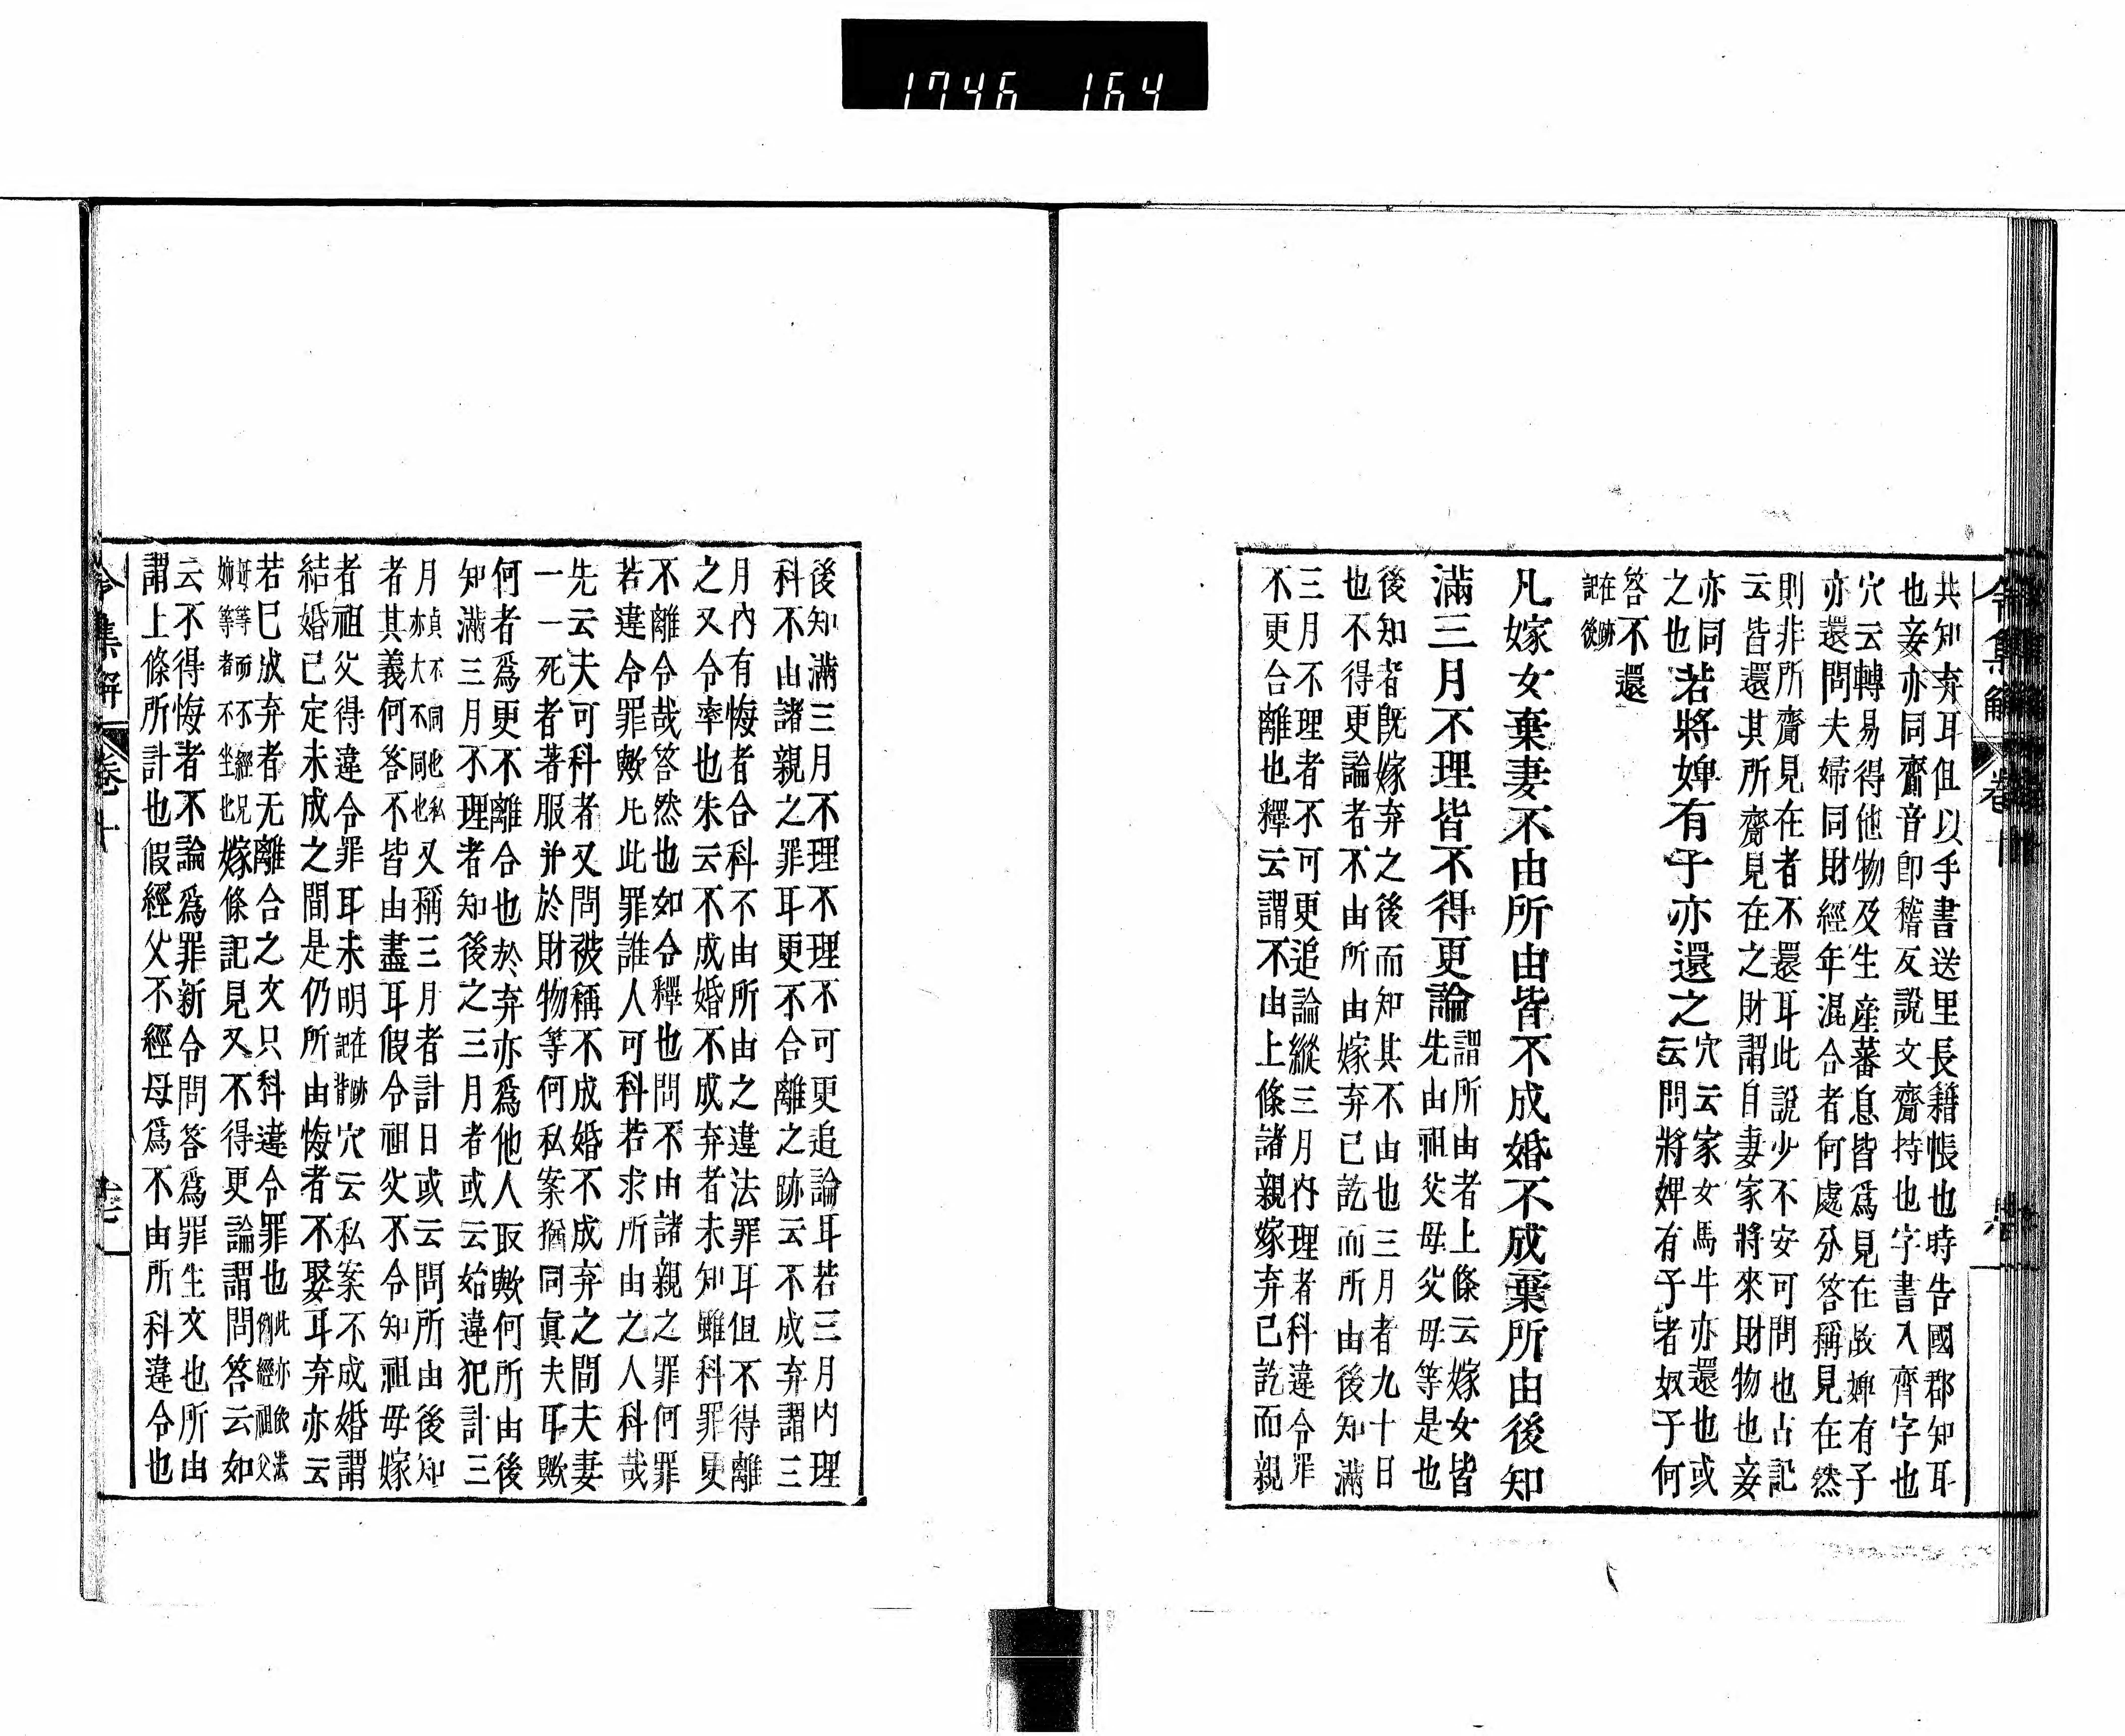 1746 164
令集解 卷十
共知弃耳但以手書送里長籍帳也時告國郡知耳
也妾亦同齎音卽稽反說文齎持也字書入齊字也
穴云轉易得他物及生産蕃息皆爲見在故婢有子
亦還問夫婦同財經年混合者何處分答稱見在然
則非所齎見在者不還耳此說少不安可問也古記
云皆還其所齎見在之財謂自妻家將來財物也妾
亦同
之也
若將婢有子亦還之
穴云家女馬牛亦還也或
云問將婢有子者奴子何
答不還
在跡
記後
凡嫁女棄妻不由所由皆不成婚不成棄所由後知
滿三月不理皆不得更論
謂所由者上條云嫁女皆
先由祖父母父母等是也
後知者旣嫁弃之後而知其不由也三月者九十日
也不得更論者不由所由嫁弃已訖而所由後知滿
三月不理者不可更追論縱三月內理者科違令罪
不更合離也釋云謂不由上條諸親嫁弃已訖而親
後知滿三月不理不理不可更追論耳若三月內理
科不由諸親之罪耳更不合離之跡云不成弃謂三
月內有悔者合科不由所由之違法罪耳但不得離
之又令率也朱云不成婚不成弃者未知雖科罪更
不離令哉答然也如令釋也問不由諸親之罪何罪
若違令罪歟凡此罪誰人可科若求所由之人科哉
先云夫可科者又問被稱不成婚不成弃之間夫妻
一一死者著服并於財物等何私案猶同眞夫耳歟
何者爲更不離合也於弃亦爲他人取歟何所由後
知滿三月不理者知後之三月者或云始違犯計三
月
貞不同也私
亦大不同也
又稱三月者計日或云問所由後知
者其義何答不皆由盡耳假令祖父不令知祖母嫁
者祖父得違令罪耳未明
在跡
記背
穴云私案不成婚謂
結婚已定未成之間是仍所由悔者不娶耳弃亦云
若已成弃者无離合之文只科違令罪也
此亦依法
例經祖父
母等而不經兄
姉等者不坐也
嫁條記見又不得更論謂問答云如
云不得悔者不論爲罪新令問答爲罪生文也所由
謂上條所計也假經父不經母爲不由所科違令也
令集解 卷十